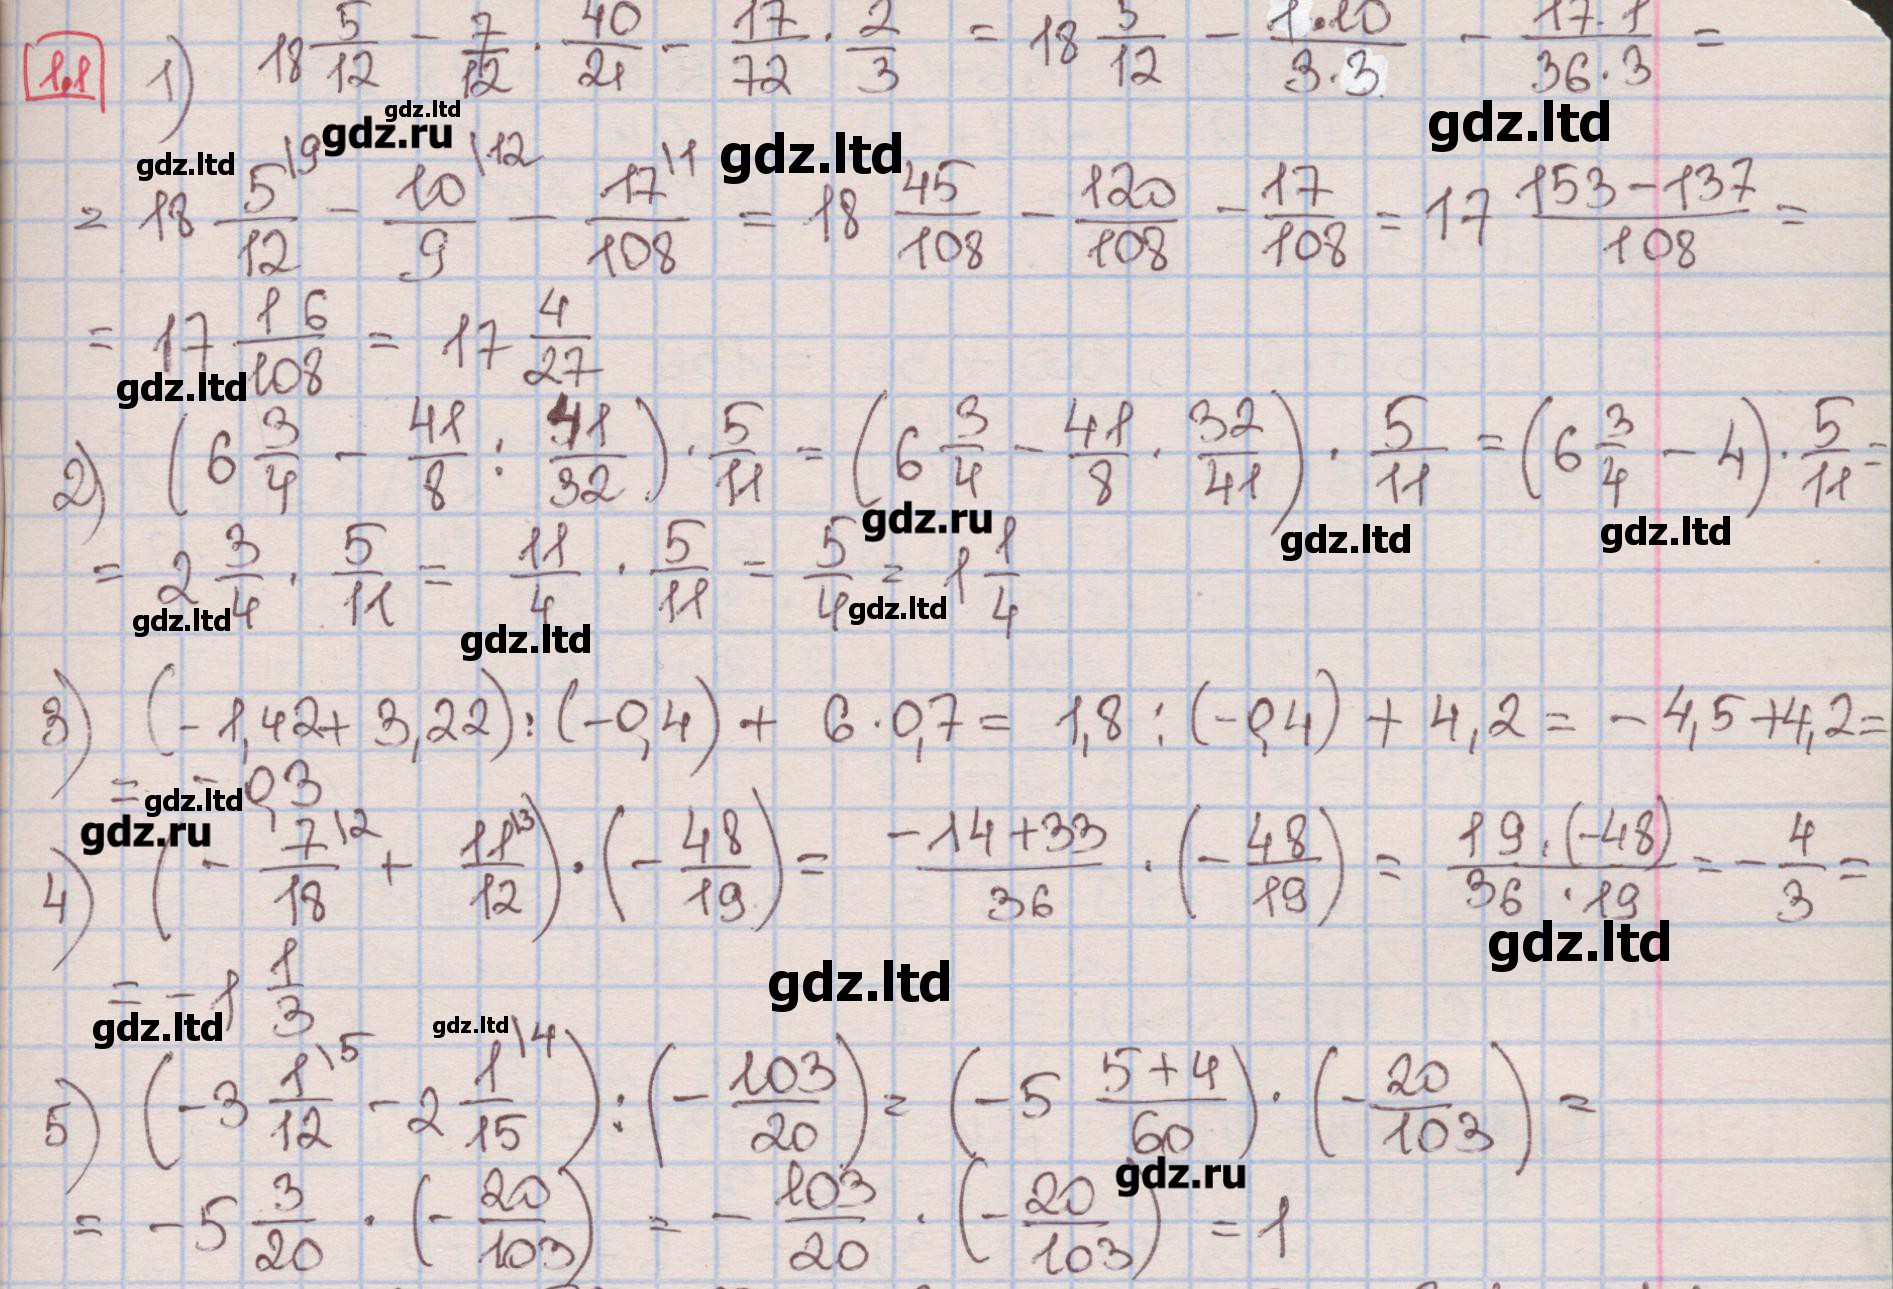 1.1 1) 18 5/12 - 7/12 · 40/21 - 17/72 · 2/3 = 18 5/12 - 1·10/3·3 - 17·1/36·3 =
gdz.ltd
gdz.ru gdz.ltd gdz.ltd gdz.ltd
= 18 5/12 \9 - 10/9 \12 - 17/108 \1 = 18 45/108 - 120/108 - 17/108 = 17 153-137/108 =
= 17 16/108 = 17 4/27
gdz.ltd
2) (6 3/4 - 41/8 : 41/32) · 5/11 = (6 3/4 - 41/8 · 32/41) · 5/11 = (6 3/4 - 4) · 5/11 =
gdz.ru gdz.ltd gdz.ltd
= 2 3/4 · 5/11 = 11/4 · 5/11 = 5/4 = 1 1/4
gdz.ltd gdz.ltd gdz.ltd
3) (-1,42+3,22):(-0,4)+ 6·0,7= 1,8:(-0,4)+4,2= -4,5+4,2=
= -0,3
gdz.ltd
gdz.ru
4) (- 7/18 \2 + 11/12 \3) · (- 48/19) = -14+33/36 · (- 48/19) = 19·(-48)/36·19 = - 4/3 =
gdz.ltd
= -1 1/3
gdz.ltd
gdz.ltd gdz.ltd
5) (-3 1/12 \5 - 2 1/15 \4) : (- 103/20) = (-5 5+4/60) · (- 20/103) =
gdz.ru
= -5 3/20 · (- 20/103) = - 103/20 · (- 20/103) = 1